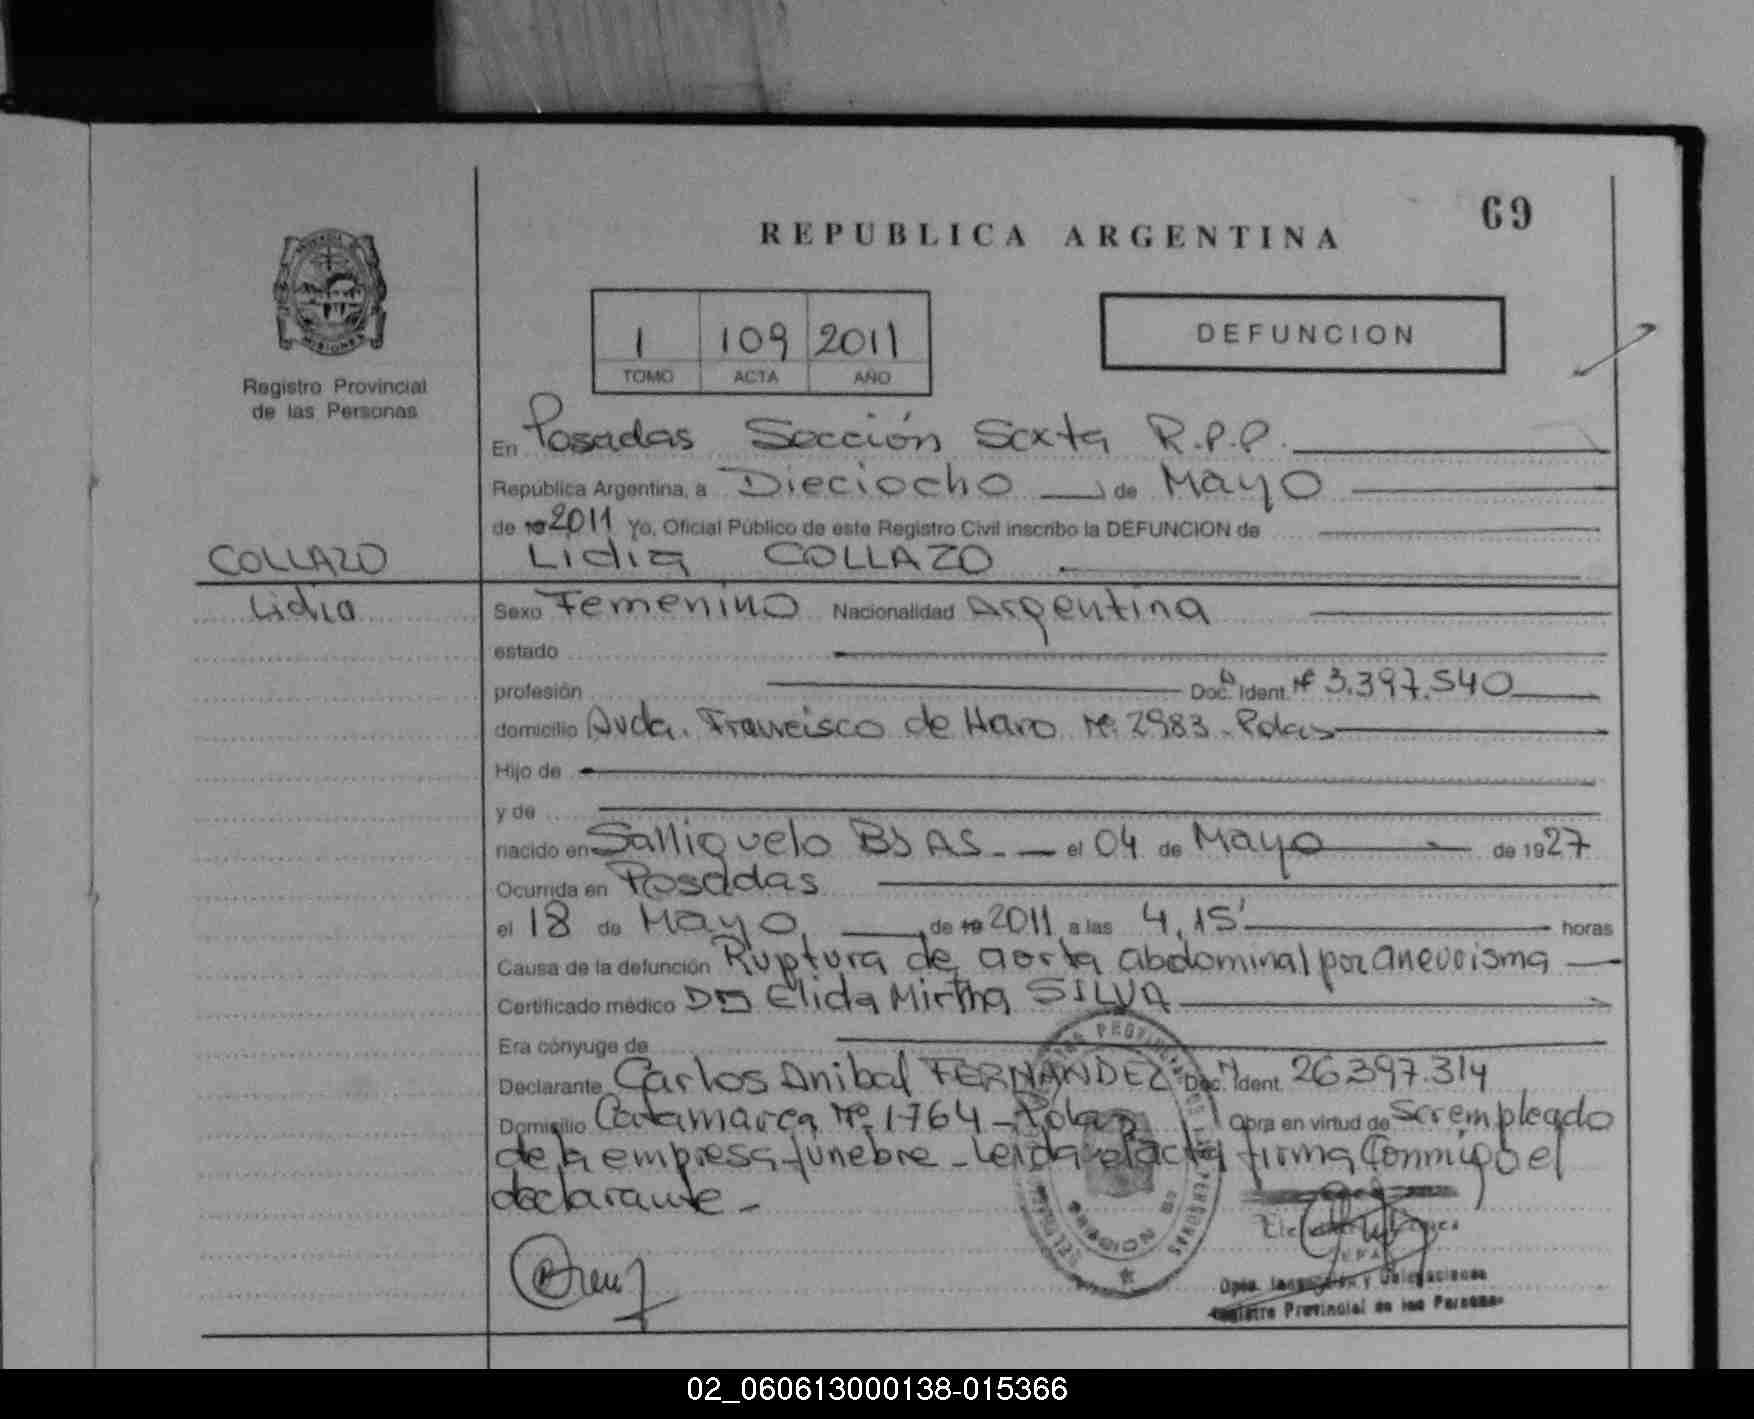 69
REPUBLICA ARGENTINA
MISIONES
1 109 2011
TOMO ACTA AÑO
DEFUNCION
Registro Provincial
de las Personas
En Posadas Sección Sexta R.P.P.
República Argentina, a Dieciocho de Mayo
de 19 2011 Yo, Oficial Público de este Registro Civil inscribo la DEFUNCION de
COLLAZO Lidia COLLAZO
Lidia Sexo Femenino Nacionalidad Argentina
estado
profesión Doc. Ident. Nº 3.397.540
domicilio Avda. Francisco de Haro Nº 2983 - Pdas
Hijo de
y de
nacido en Salliquelo BS AS. el 04 de Mayo de 1927
Ocurrida en Posadas
el 18 de Mayo de 19 2011 a las 4,15' horas
Causa de la defunción Ruptura de aorta abdominal por aneurisma
Certificado médico Elida Mirtha SILVA
Era cónyuge de
Declarante Carlos Anibal FERNANDEZ Doc. Ident. 26397.314
Domicilio Catamarca Nº 1764 - Pdas Obra en virtud de Ser empleado
de la empresa fúnebre - Leida el acta firma conmigo el
declarante -
Dpto. Inspección y Delegaciones
Registro Provincial de las Personas
02_060613000138-015366